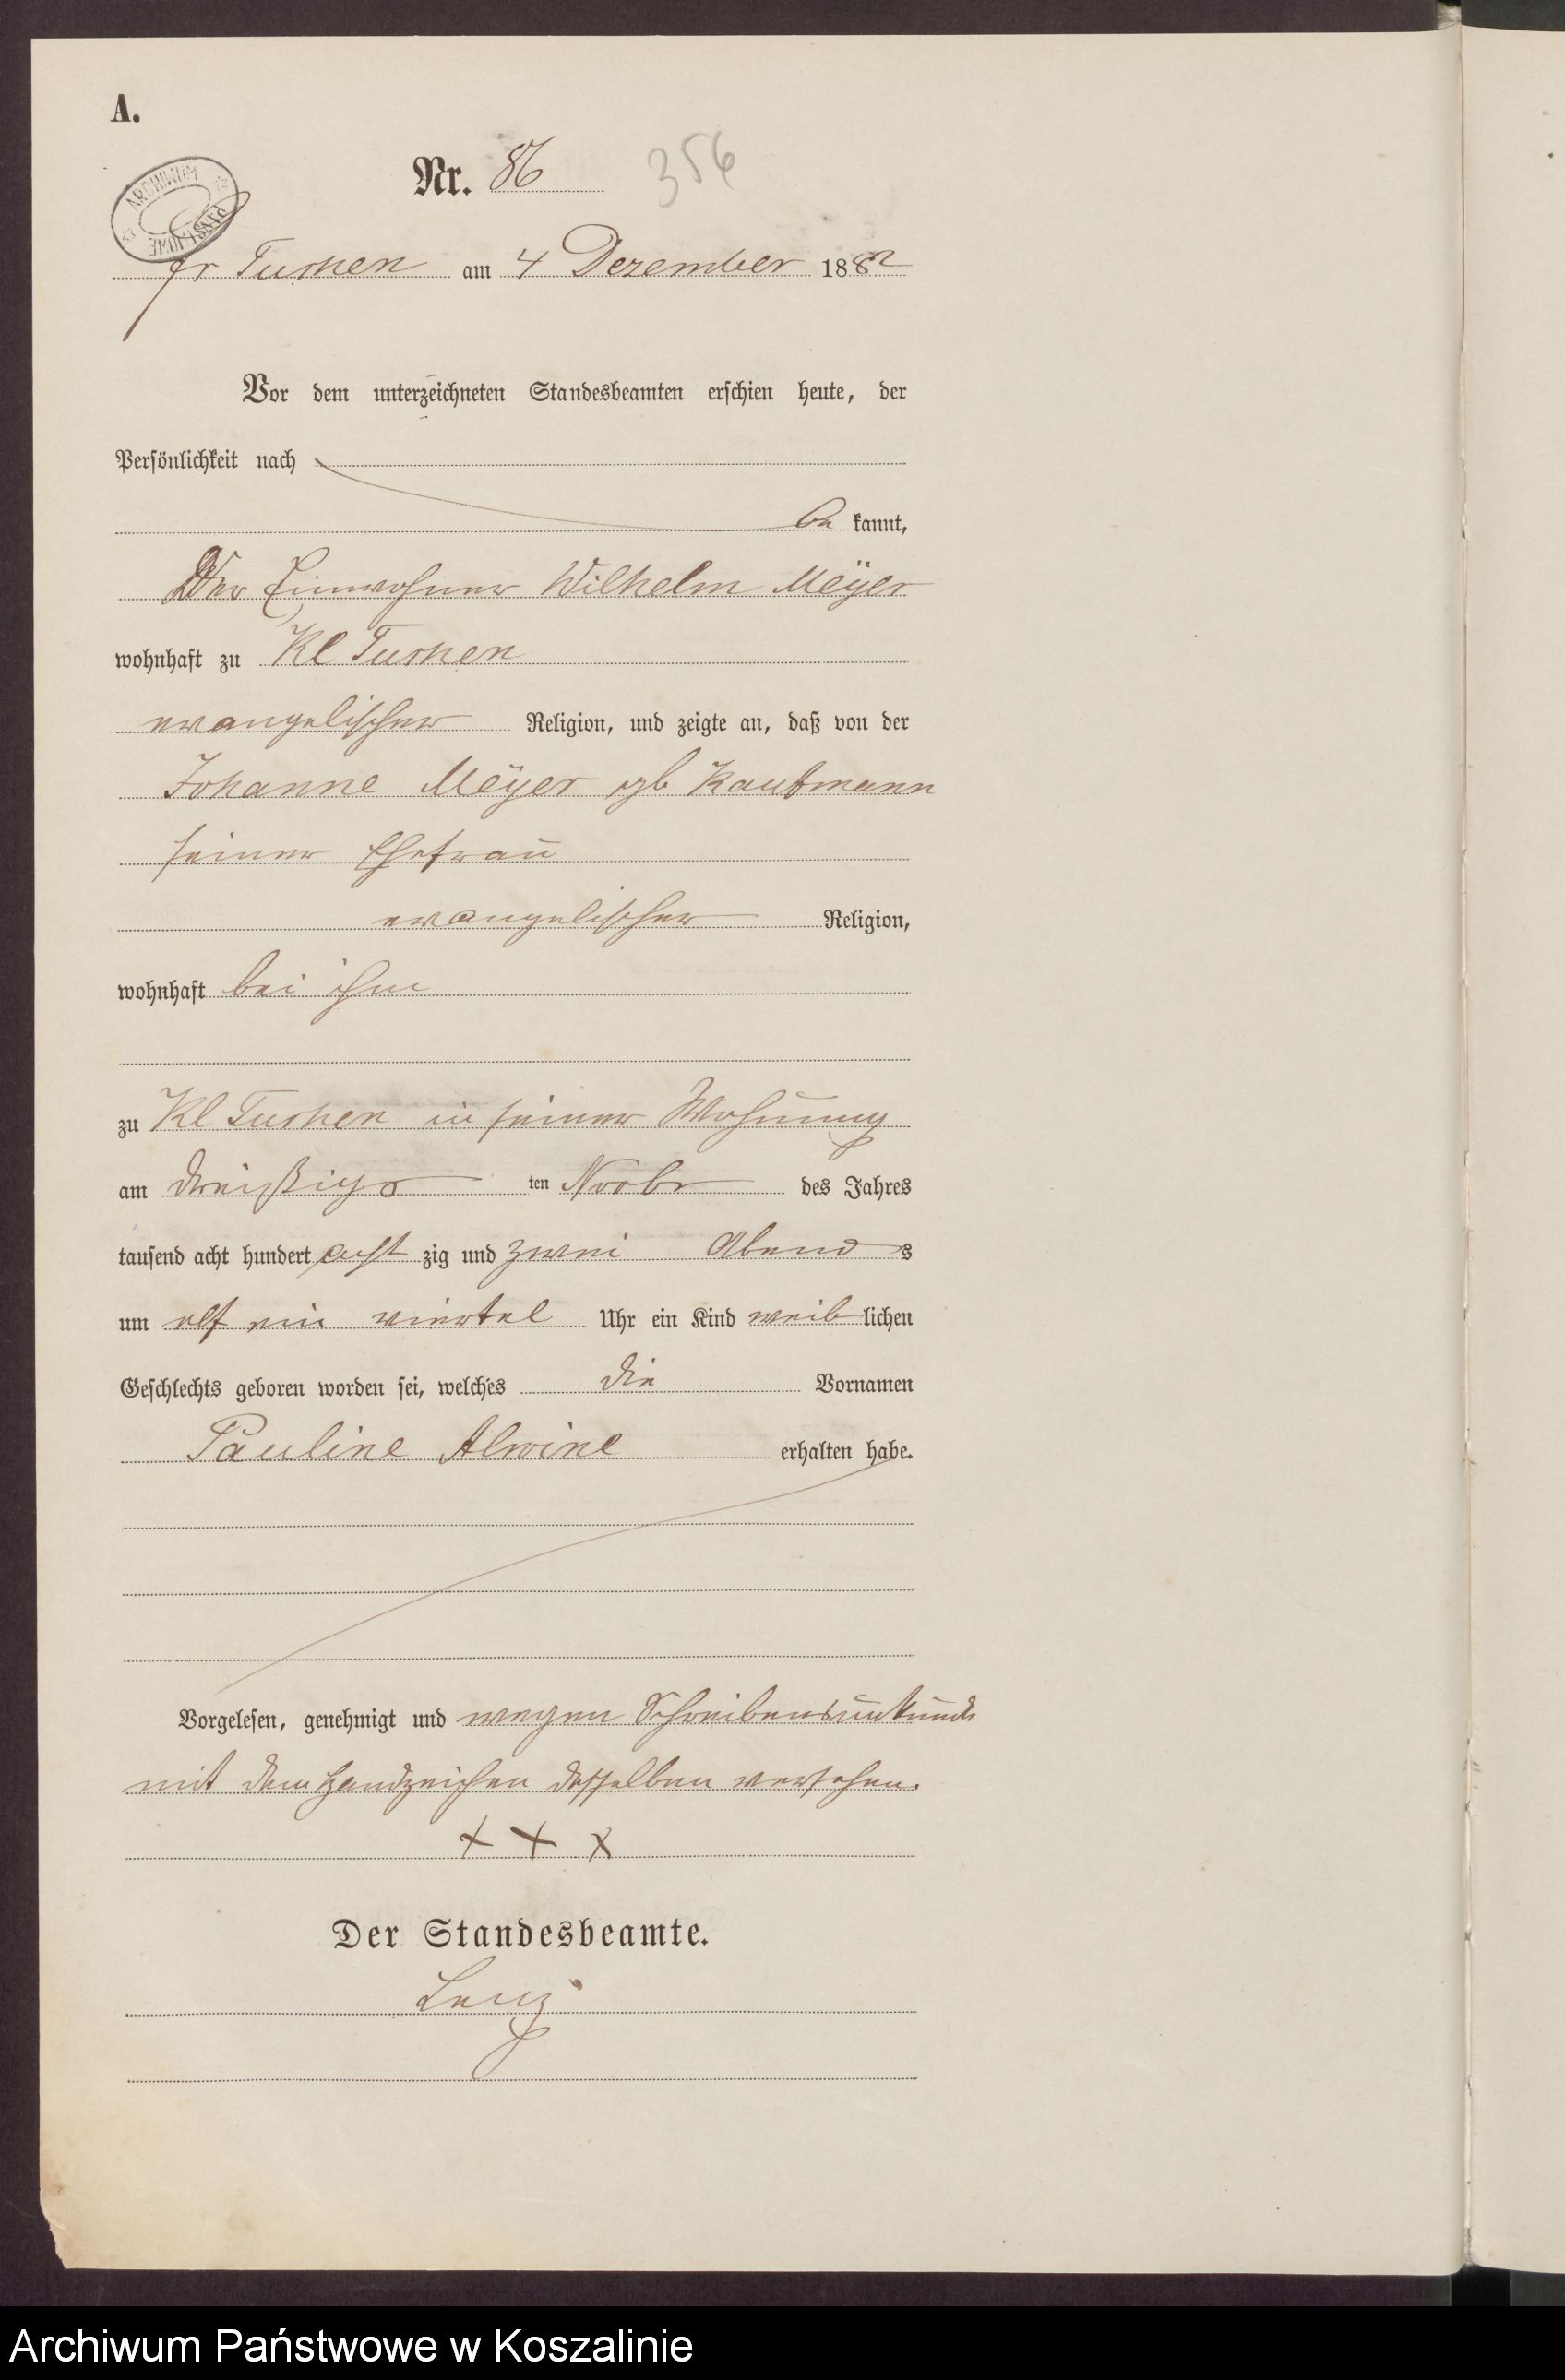 A.
Nr. 86 356
ARCHIWUM PAŃSTWOWE
Gr Tuchen am 4 Dezember 1882
Vor dem unterzeichneten Standesbeamten erschien heute, der
Persönlichkeit nach
be kannt,
Der Einwohner Wilhelm Meÿer
wohnhaft zu Kl Tuchen
evangelischer Religion, und zeigte an, daß von der
Johanne Meÿer gb Kaufmann
seiner Ehefrau
evangelischer Religion,
wohnhaft bei ihm
zu Kl Tuchen in seiner Wohnung
am dreißigs ten Novbr des Jahres
tausend acht hundert acht zig und zwei Abend s
um elf ein viertel Uhr ein Kind weib lichen
Geschlechts geboren worden sei, welches die Vornamen
Pauline Alwine erhalten habe.
Vorgelesen, genehmigt und wegen Schreibensunkunde
mit dem Handzeichen desselben versehen.
+ + x
Der Standesbeamte.
Lenz
Archiwum Państwowe w Koszalinie